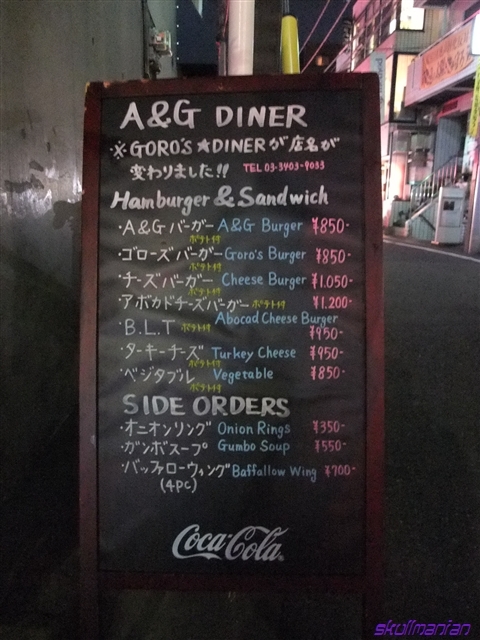 A&G DINER
※GORO'S ★DINERが店名が
変わりました!! TEL 03-3403-9033
Hamburger & Sandwich
・A&Gバーガー A&G Burger ¥850-
ポテト付
・ゴローズバーガー Goro's Burger ¥850-
ポテト付
・チーズバーガー Cheese Burger ¥1.050-
ポテト付
・アボカドチーズバーガー ポテト付 ¥1.200-
Abocad Cheese Burger
・B.L.T ポテト付 ¥950-
・ターキーチーズ Turkey Cheese ¥950-
ポテト付
・ベジタブル Vegetable ¥850-
ポテト付
SIDE ORDERS
・オニオンリング Onion Rings ¥350-
・ガンボスープ Gumbo Soup ¥550-
・バッファローウィング Baffallow Wing ¥700-
(4PC)
Coca-Cola
skullmanian